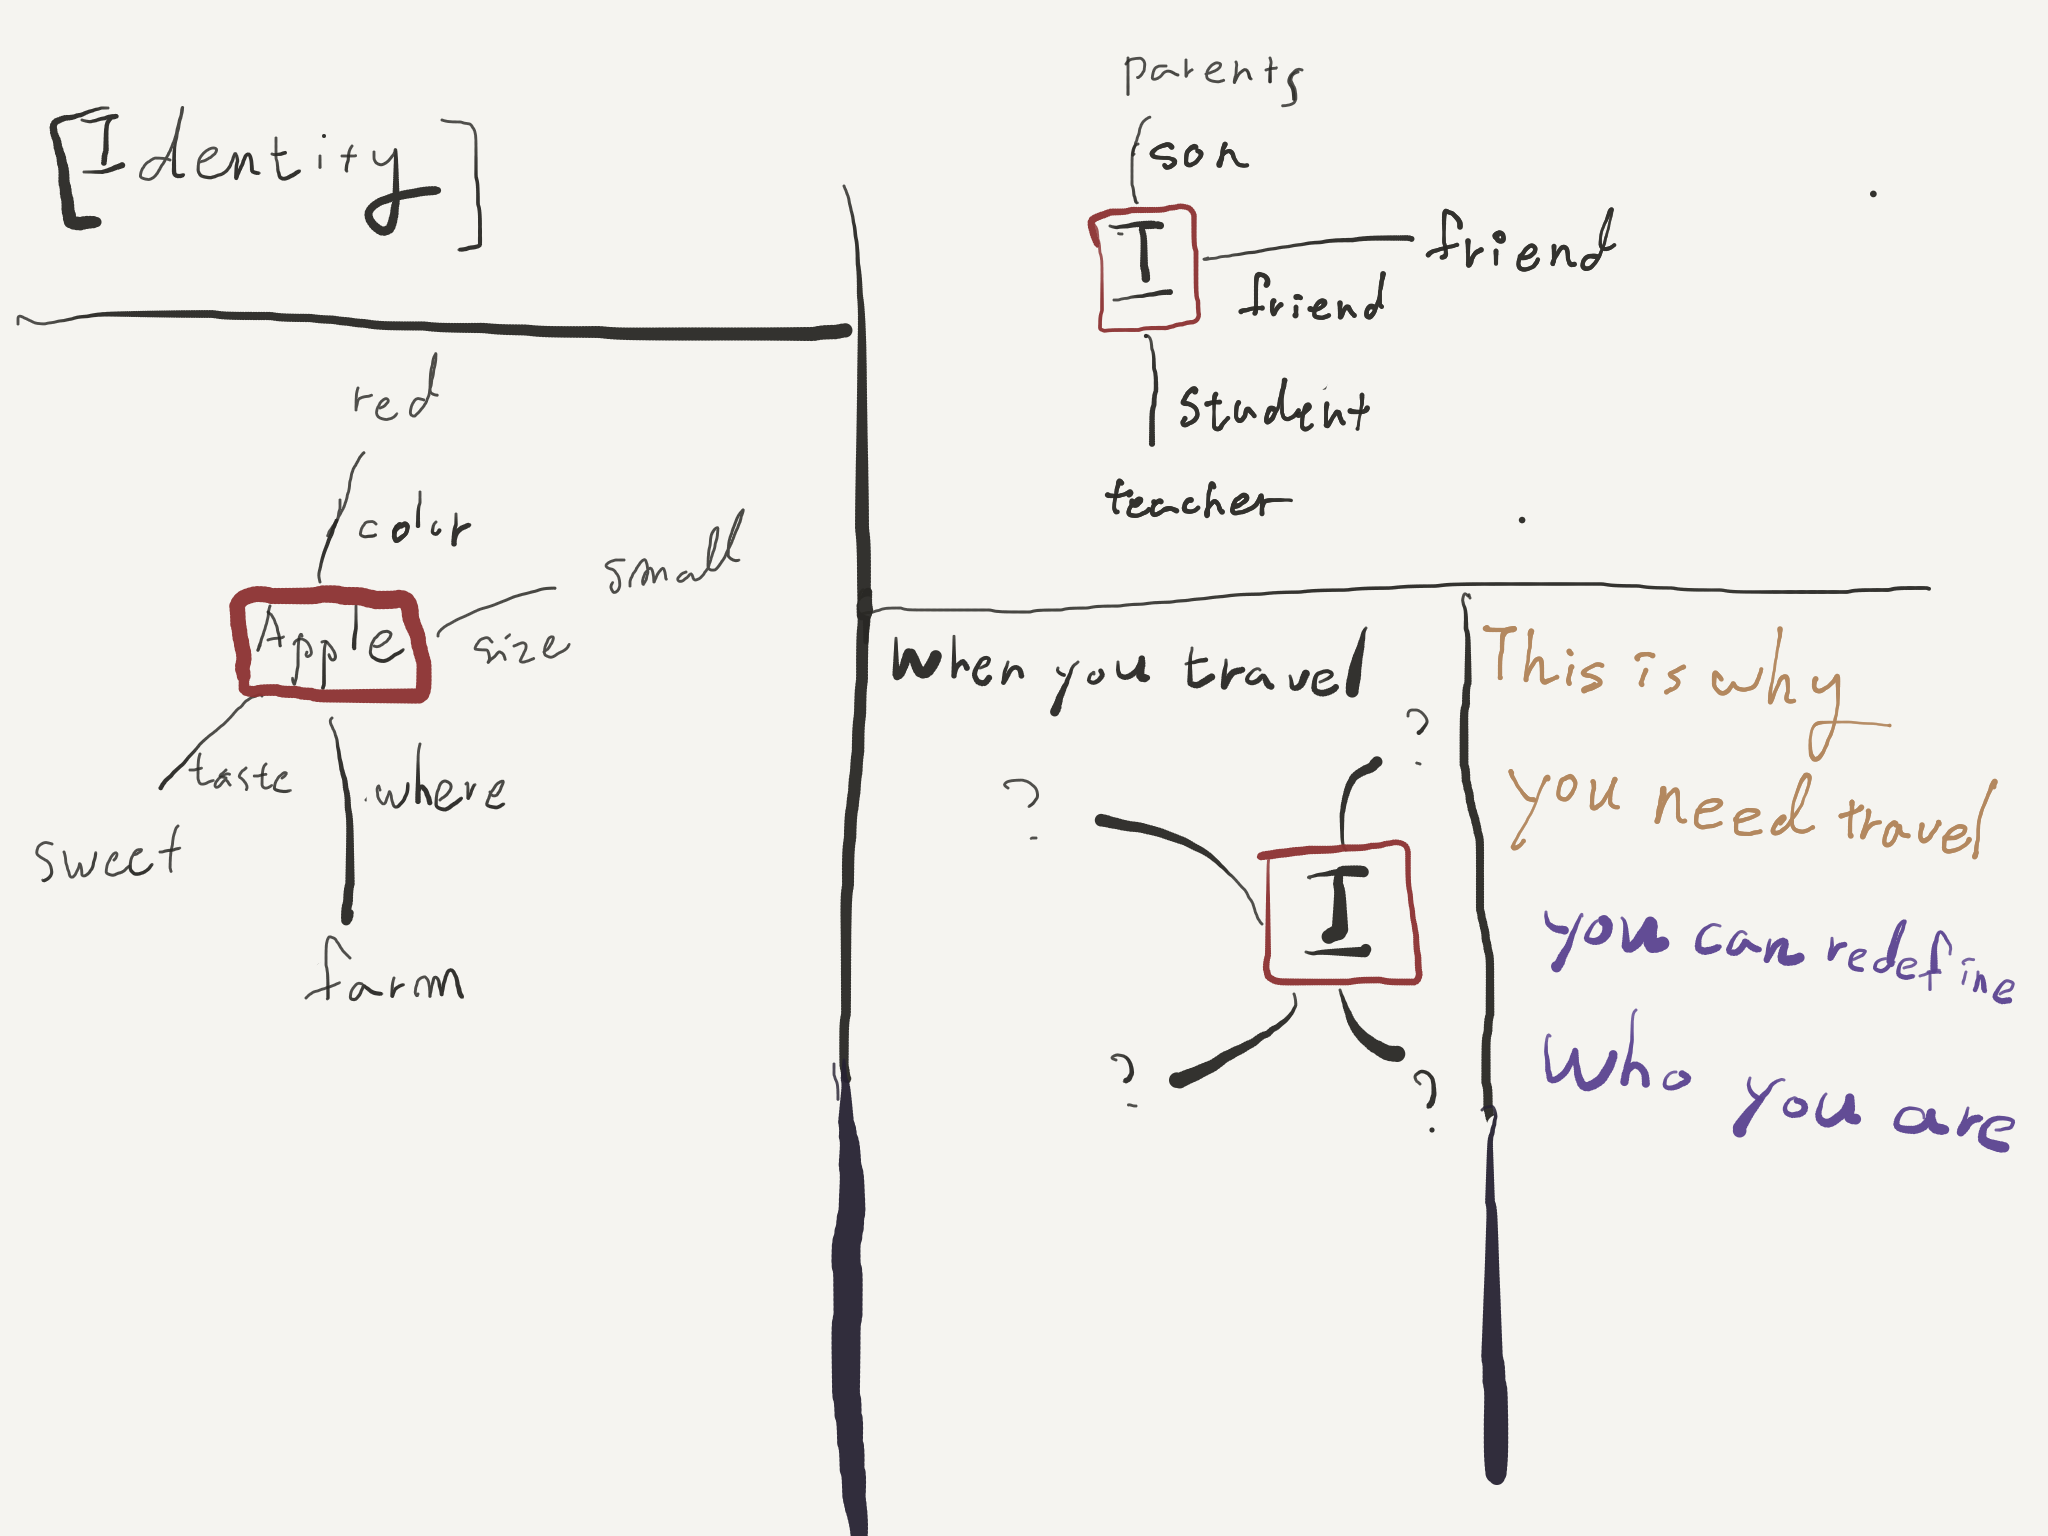 [Identity]
red
color
Apple
small
size
taste
where
sweet
farm
parents
son
I
friend
friend
student
teacher
When you travel
?
?
I
?
?
This is why
you need travel
you can redefine
who you are